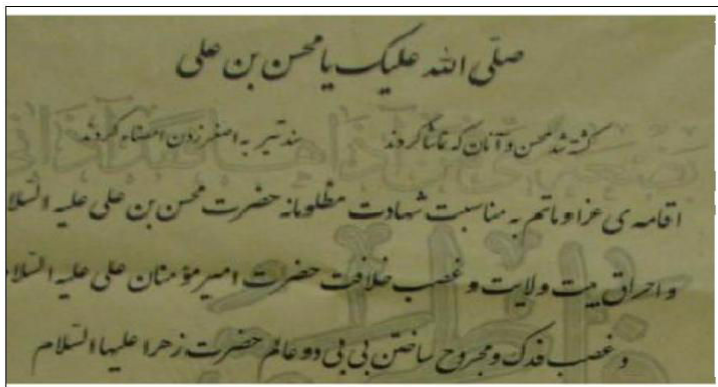 صلّی الله علیک یا محسن بن علی
کشته شد محسن و آنان که تماشا کردند سند تیر به اصغر زدن امضاء کردند
اقامه ی عزا و ماتم به مناسبت شهادت مظلومانه حضرت محسن بن علی علیه السلا
و احراق بیت ولایت و غصب خلافت حضرت امیرمؤمنان علی علیه السلا
و غصب فدک و مجروح ساختن بی بی دو عالم حضرت زهرا علیها السّلام